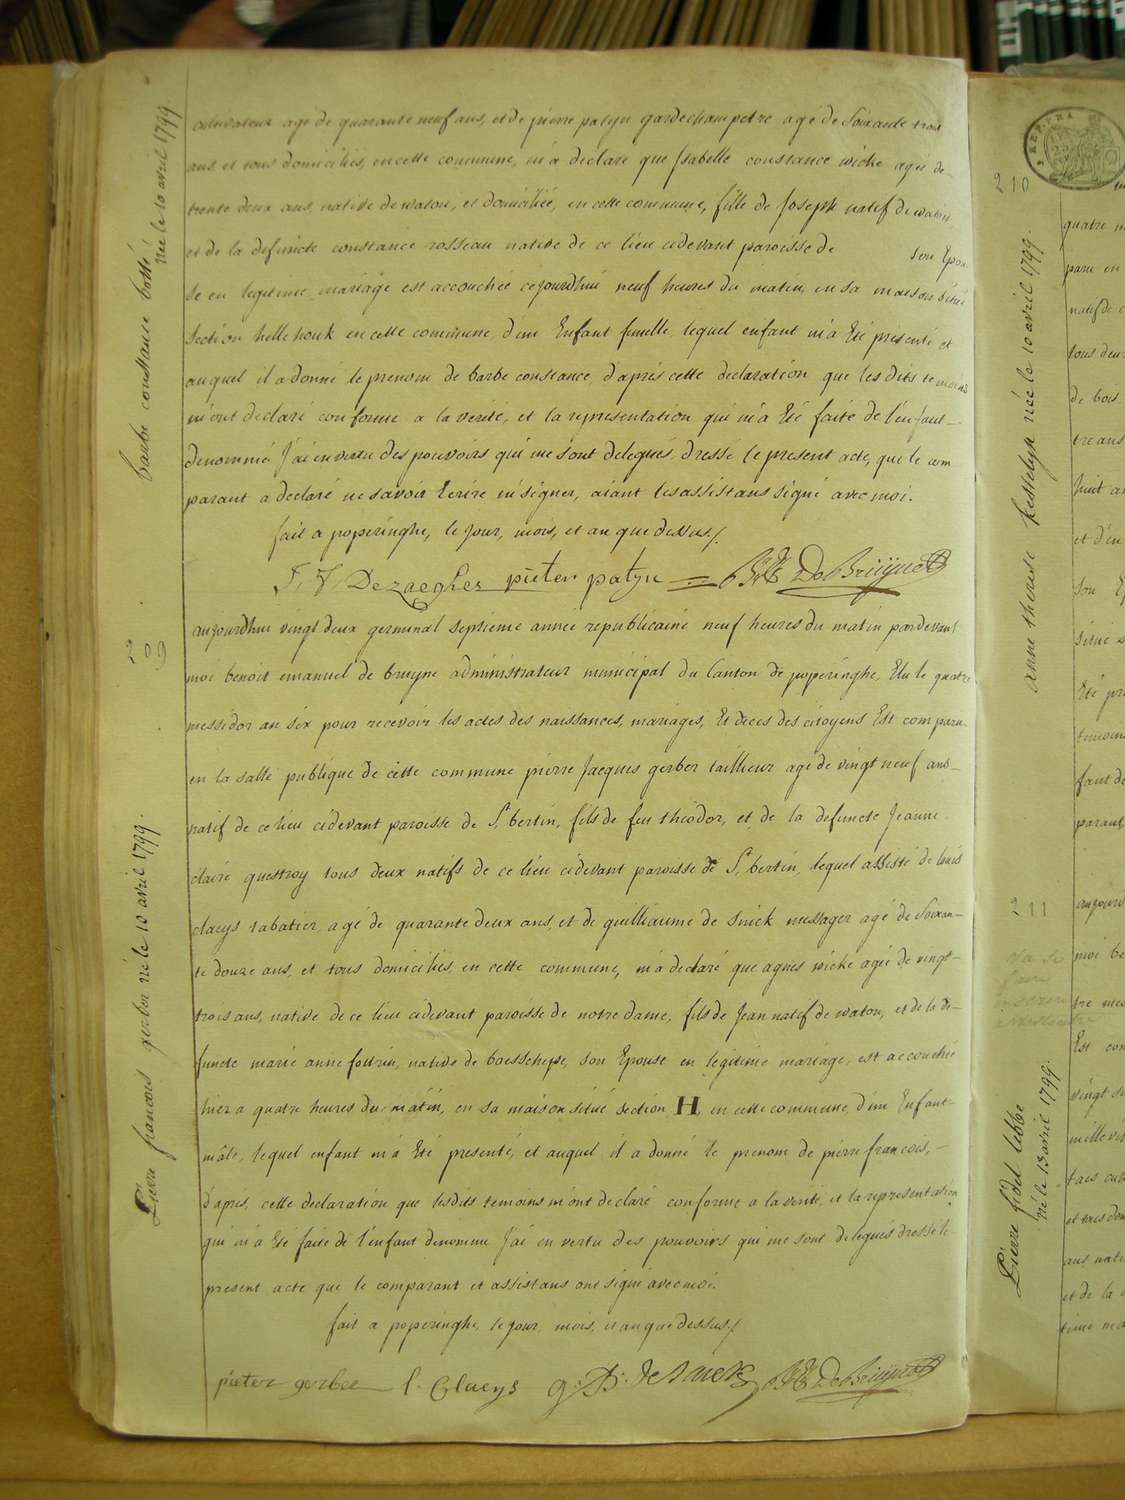 barbe constance botté
née le 10 avril 1799
cultivateur agé de quarante neuf ans, et de pierre patyn gardechampetre agé de Soixante trois
ans, et tous domiciliés, en cette commune, m'a declaré que Isabelle constance wicke agée de
trente deux ans, native de watou, et domiciliée, en cette commune, fille de Joseph natif de watou
et de la defuncte constance rosseau native de ce lieu cidevant paroisse de son Epou
se en legitime mariage est accouchée cejourdhui neuf heures du matin en sa maison située
section helle houk en cette commune d'un Enfant femelle lequel enfant m'a Eté presenté et
auquel il a donné le prenom de barbe constance d'aprés cette declaration que les dits temoins
m'ont declaré conforme a la verité, et la representation qui m'a Eté faite de l'enfant
denommé J'ai en vertu des pouvoirs qui me sont delegués dressé le present acte, que le com
parant a declaré ne savoir Ecrire ni signer, aiant les assistans signé avec moi.
fait a poperinghe, le Jour, mois, et an que dessus/.
pieter patyn B: E: De Bruyne
209
Pierre francois gerber né le 10 avril 1799.
aujourdhui vingt deux germinal septieme année republicaine neuf heures du matin pardevant
moi benoit emanuel de bruyne administrateur municipal du Canton de poperinghe, Elu le quatre
messidor an six pour recevoir les actes des naissances, mariages, Et deces des citoyens Est comparu
en la salle publique de cette commune pierre Jacques gerber tailleur agé de vingt neuf ans
natif de ce lieu cidevant paroisse de St bertin, fils de feu theodor, et de la defuncte Jeanne
claire questroy tous deux natifs de ce lieu cidevant paroisse de St bertin, lequel assisté de louis
claeys tabatier, agé de quarante deux ans, et de guilliaume de snick messager agé de Soixan-
te douze ans, et tous domiciliés, en cette commune, m'a declaré que agnes wicke agée de vingt-
trois ans, native de ce lieu cidevant paroisse de notre dame, fils de Jean natif de watou, et de la de-
functe marie anne native de boesschepe, son Epouse en legitime mariage, est accouchée
hier a quatre heures du matin, en sa maison située section H en cette commune, d'un Enfant
mâle, lequel enfant m'a Eté presenté, et auquel il a donné le prenom de pierre francois,
d'apres cette declaration que lesdits temoins m'ont declaré conforme a la verité, et la representation
qui m'a Eté faite de l'enfant denommé J'ai en vertu des pouvoirs qui me sont delegués dressé le
present acte que le comparant et assistans ont signé avec moi.
fait a poperinghe, le Jour, mois, et an que dessus/.
pieter gerber l. Claeys B: E: De Bruyne
210
anne therese Kestelyn née le 10 avril 1799.
quatre
natif de
tous deux
de bois
tre ans
huit
et d'un
son
situé
Eté
temoins
fant de
parant
211
Pierre fidel lebbe
né le 13 avril 1799
moi be
tre mes
Est com
vingt
mille
et tous
et de la